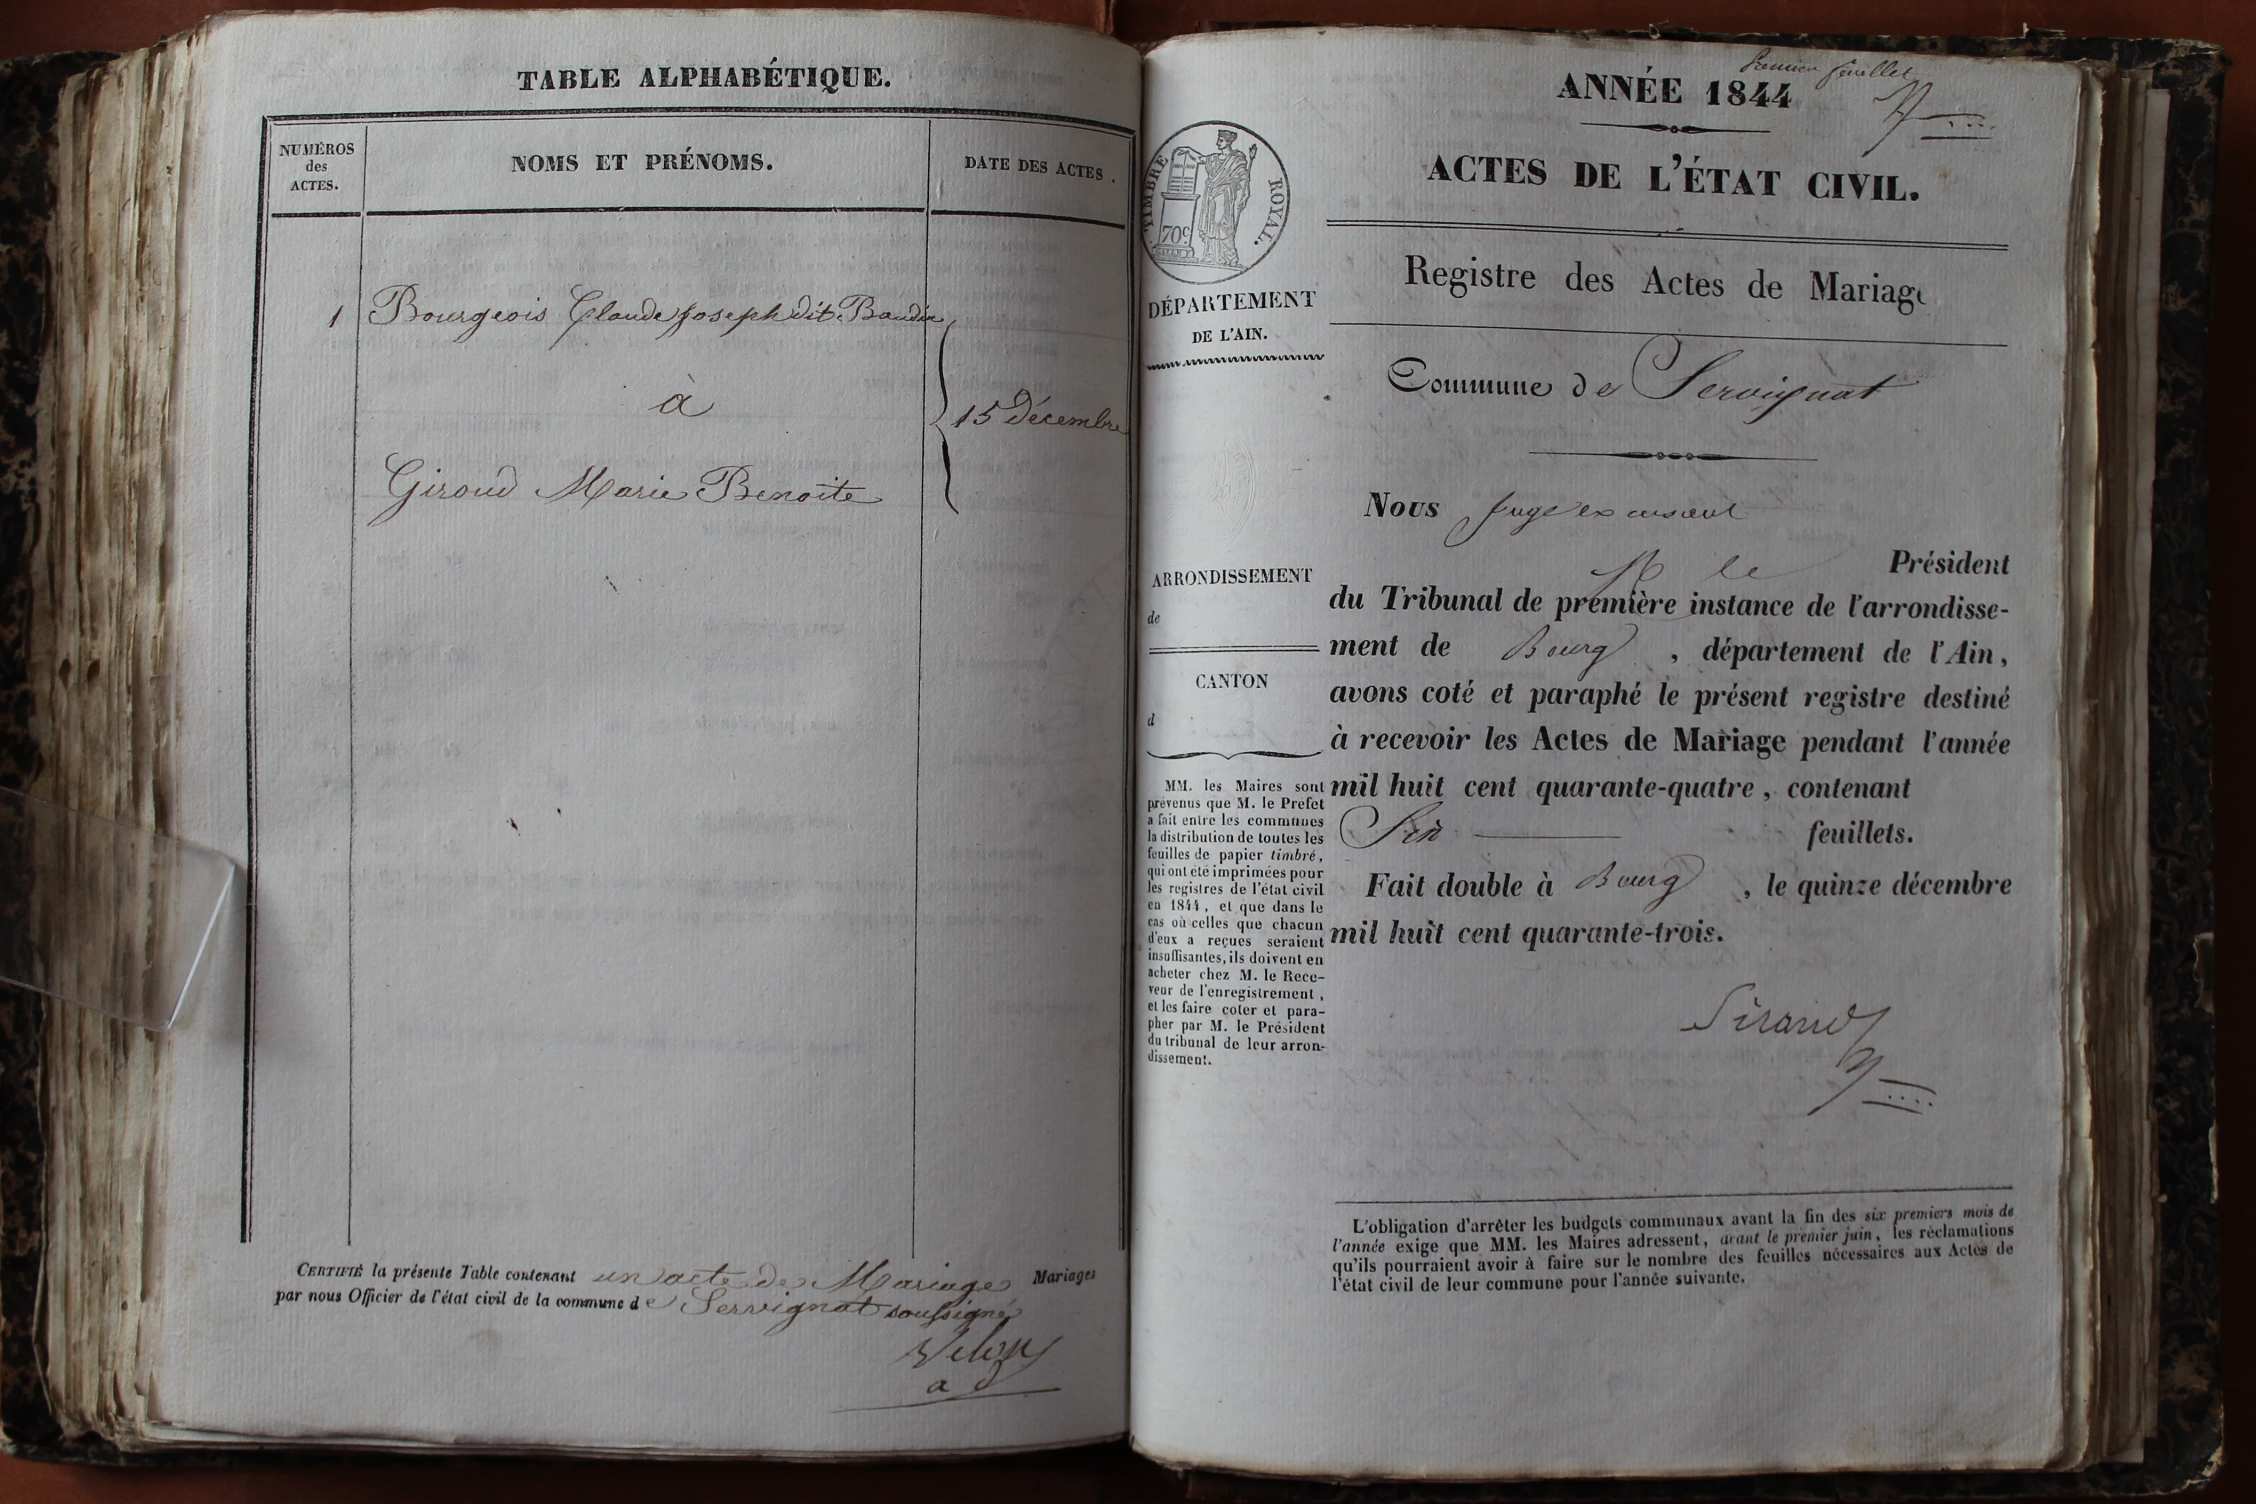 TABLE ALPHABÉTIQUE.
NUMÉROS
des
ACTES.
NOMS ET PRÉNOMS.
DATE DES ACTES.
1 Bourgeois Claude Joseph dit Baudin
à
15 Décembre
Giroud Marie Benoite
CERTIFIÉ la présente Table contenant un acte de Mariage Mariages
par nous Officier de l'état civil de la commune de Servignat soussigné
a d
Premier feuillet
ANNÉE 1844
ACTES DE L'ÉTAT CIVIL.
TIMBRE ROYAL.
70c
Registre des Actes de Mariage
DÉPARTEMENT
DE L'AIN.
Commune de Servignat
Nous Juge
ARRONDISSEMENT
de
CANTON
d
MM. les Maires sont
prévenus que M. le Préfet
a fait entre les communes
la distribution de toutes les
feuilles de papier timbré,
qui ont été imprimées pour
les registres de l'état civil
en 1844, et que dans le
cas où celles que chacun
d'eux a reçues seraient
insuffisantes, ils doivent en
acheter chez M. le Rece-
veur de l'enregistrement,
et les faire coter et para-
pher par M. le Président
du tribunal de leur arron-
dissement.
M le Président
du Tribunal de première instance de l'arrondisse-
ment de Bourg, département de l'Ain,
avons coté et paraphé le présent registre destiné
à recevoir les Actes de Mariage pendant l'année
mil huit cent quarante-quatre, contenant
Six feuillets.
Fait double à Bourg, le quinze décembre
mil huit cent quarante-trois.
Sirand
L'obligation d'arrêter les budgets communaux avant la fin des six premiers mois de
l'année exige que MM. les Maires adressent, avant le premier juin, les réclamations
qu'ils pourraient avoir à faire sur le nombre des feuilles nécessaires aux Actes de
l'état civil de leur commune pour l'année suivante.